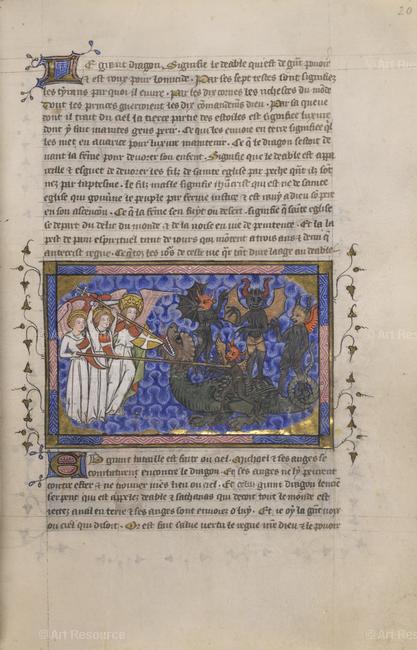 20
Le grant dragon. Signifie le deable qui est de grant pouoir
& est roux par homicide. Par ses sept testes sont signifiez
les tyrans par quoi il euure. Par les dix cornes les richesces du mõde
dont les princes guerroient les dix cõmandemẽs dieu. Par sa queue
dont il trait du ciel la tierce partie des estoiles est signifiee luxure
dont y suit maintes gens perir. Ce qui les enuoie en terre signifie ql
les met en auarice pour luxure maintenir. Ce q̃ le dragon sestoit de
uant la fẽme pour deuorer son enfant. Signifie que le deable est appa
reille & esguet de deuorer les filz de sainte eglise par pechie
nez par baptesme. Le filz masle signifie ih̃ucrist qui est ne de sainte
eglise qui gouuerne le peuple par ferme iustice & est rauy a dieu
en son ascencion. Ce q̃ la fẽme sen fuyt ou desert signifie q̃ sainte eglise
se depart du delit du monde & de la noise en vie de penitence. Et la
de pain espirituel tant de iours qui mõtent a trois ans & demi q̃
antecrist regne.
Une grant bataille est faite ou ciel. Michael & ses anges se
combatirent encontre le dragon. Et ses anges ne sy peurent
contre ester & ne trouuer mes lieu ou ciel. Et celui grant dragon lencien
serpent qui est appelez deable & sathanas qui decoit tout le monde est
iectez aual en terre & ses anges sont enuoiez o luy. Et ie oy la grãt voix
ou ciel qui disoit. Or est fait salue vertu le regne nr̃e dieu & le pouoir
© Art Resource
© Art Resource
© Art Resource
© Art Resource